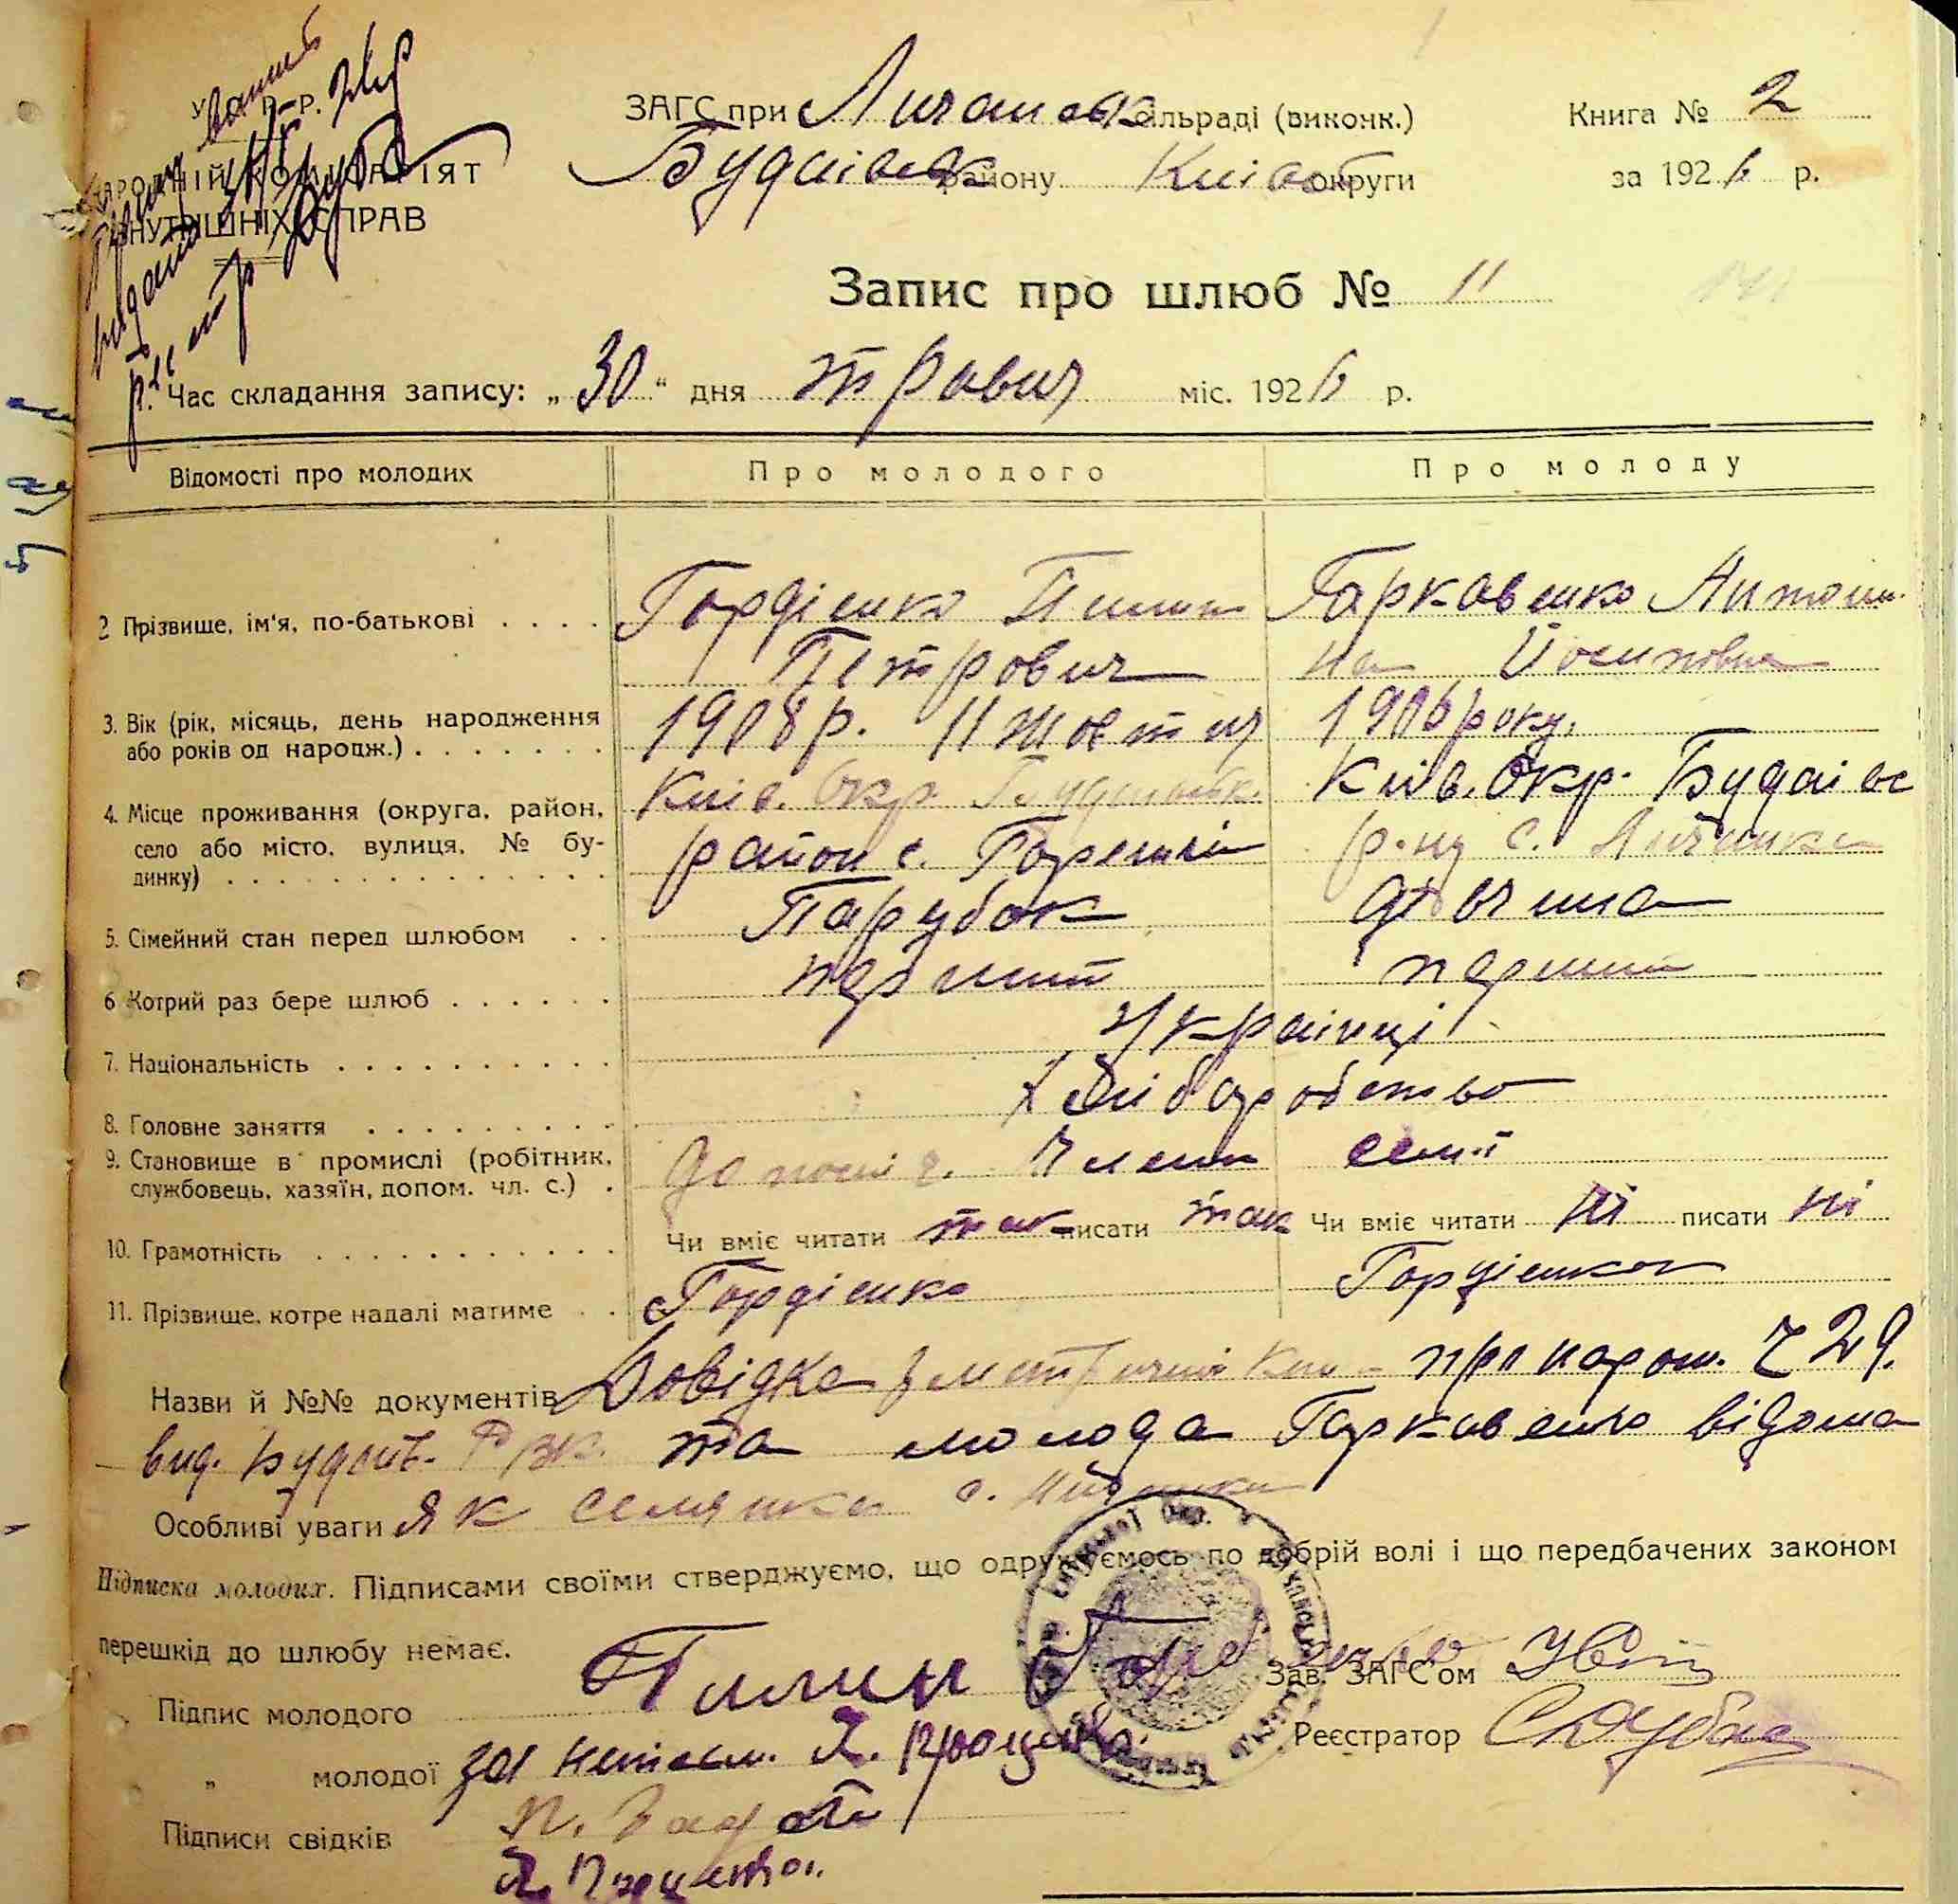 У. С. Р. Р.
НАРОДНІЙ КОМІСАРІЯТ
ВНУТРІШНІХ СПРАВ
ЗАГС при Личанськ сільраді (виконк.)
Будаївськ району Київськ округи
Книга № 2
за 1926 р.
Запис про шлюб № 11
Час складання запису: „30“ дня травня міс. 1926 р.
Відомості про молодих
Про молодого
Про молоду
2 Прізвище, ім'я, по-батькові
Гордієнко Пилип
Петрович
Гаркавенко Антони-
на Йосиповна
3. Вік (рік, місяць, день народження
або років од народж.)
1908 р. 11 жовтня
1906 року.
4. Місце проживання (округа, район,
село або місто, вулиця, № бу-
динку)
Київ. Окр. Будаївськ.
район с. Гореничі
Київ. Окр. Будаївс
р-ну с. Личанка
5. Сімейний стан перед шлюбом
Парубок
дівчина
6 Котрий раз бере шлюб
перший
перший
7. Національність
українці
8. Головне заняття
хліборобство
9. Становище в промислі (робітник,
службовець, хазяїн, допом. чл. с.)
члени семї
10. Грамотність
Чи вміє читати так писати так
Чи вміє читати ні писати ні
11. Прізвище, котре надалі матиме
Гордієнко
Гордієнко
Назви й №№ документів Довідка з метричної кни- про народж. Ч 29.
вид. Будаїв. РВК. та молода Гаркавенко відома
Особливі уваги як селянка с. Личанки
Підписка молодих. Підписами своїми стверджуємо, що одружуємось по добрій волі і що передбачених законом
перешкід до шлюбу немає.
Підпис молодого Пилип Гордієнко
Зав. ЗАГС'ом
„ молодої за неписм. Я. Проценко
Реєстратор С Дубас
Підписи свідків
Я. Проценко